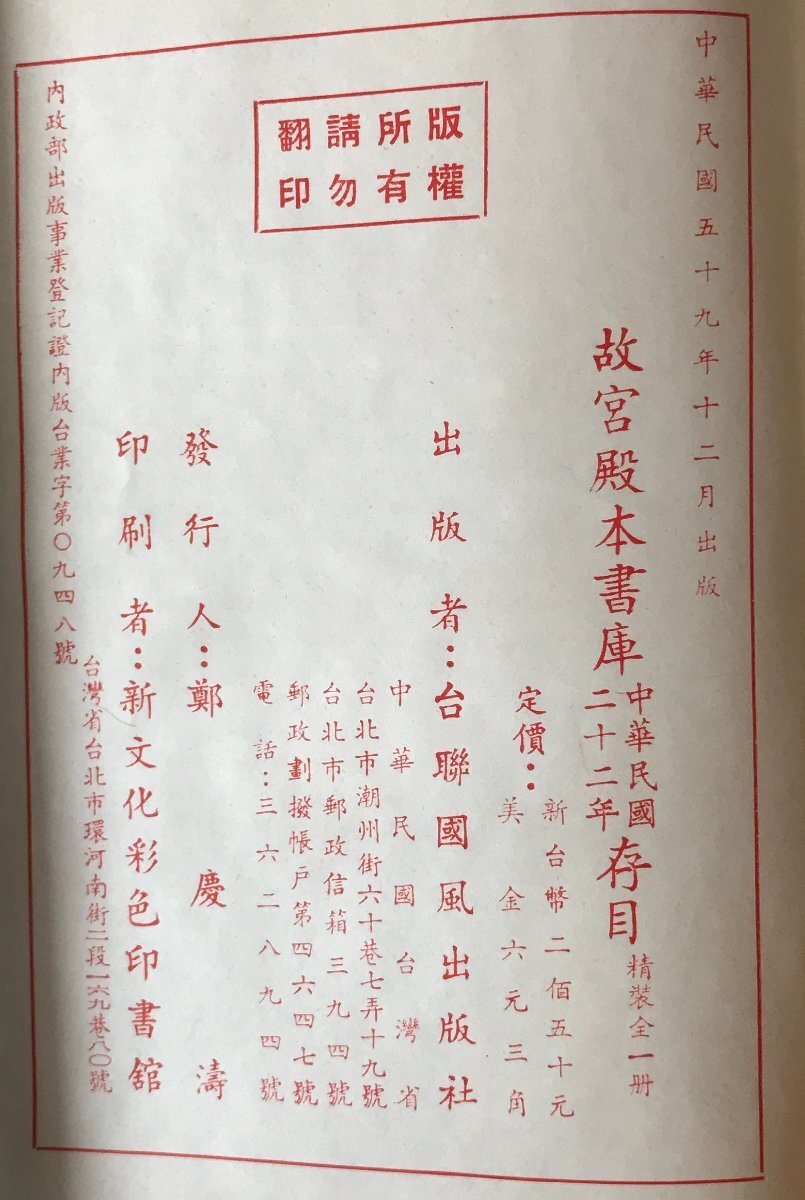 中華民國五十九年十二月出版
故宮殿本書庫中華民國二十二年存目 精裝全一册
定價：
新台幣二佰五十元
美金六元三角
出版者：台聯國風出版社
中華民國台灣省
台北市潮州街六十巷七弄十九號
台北市郵政信箱三九四號
郵政劃撥帳戶第四六四七號
電話：三六二八九四號
發行人：鄭慶濤
印刷者：新文化彩色印書舘
台灣省台北市環河南街二段一六九巷八〇號
內政部出版事業登記證內版台業字第〇九四八號
版權
所有
請勿
翻印